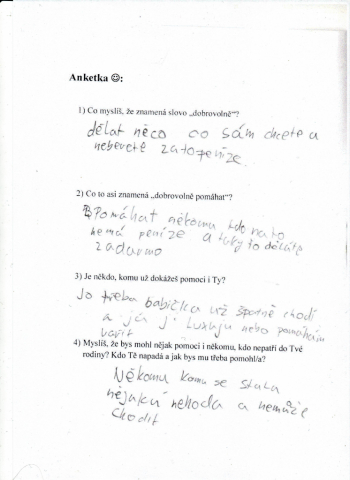 Anketka ☺:
1) Co myslíš, že znamená slovo „dobrovolně“?
dělat něco co sám chcete a
neberete zato peníze
2) Co to asi znamená „dobrovolně pomáhat“?
Pomáhat někomu kdo na to
nemá peníze a taky to děláte
zadarmo
3) Je někdo, komu už dokážeš pomoci i Ty?
Jo třeba babička už špatně chodí
a já jí luxuju nebo pomáhám
vařit
4) Myslíš, že bys mohl nějak pomoci i někomu, kdo nepatří do Tvé
rodiny? Kdo Tě napadá a jak bys mu třeba pomohl/a?
Někomu komu se stala
nějaká nehoda a nemůže
chodit